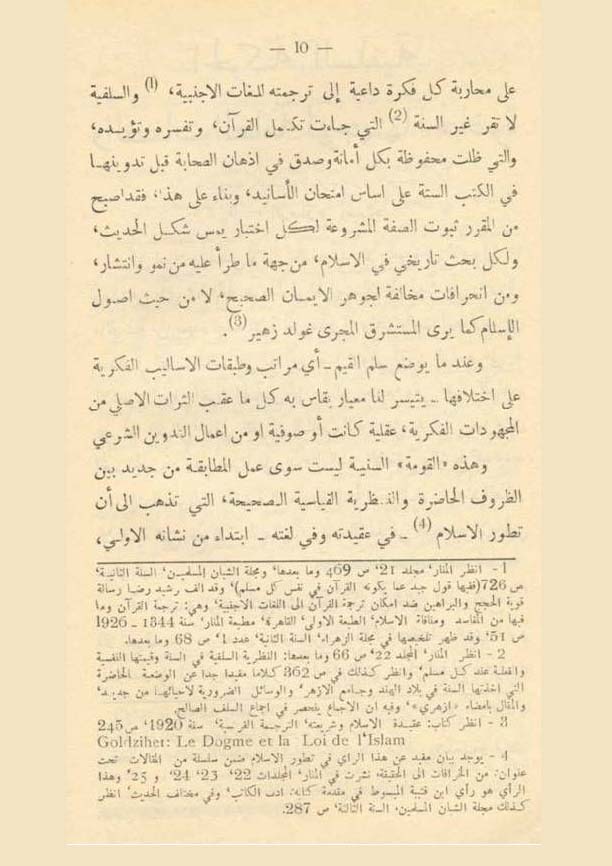 — 10 —
على محاربة كل فكرة داعية إلى ترجمته للغات الاجنبية، (1) والسلفية
لا تقر غير السنة (2) التي جاءت تكمل القرآن، وتفسره وتؤيده،
والتي ظلت محفوظة بكل أمانة وصدق في اذهان الصحابة قبل تدوينها
في الكتب الستة على اساس امتحان الأسانيد، وبناء على هذا، فقد اصبح
من المقرر ثبوت الصفة المشروعة لكل اختبار يمس شكل الحديث،
ولكل بحث تاريخي في الاسلام، من جهة ما طرأ عليه من نمو وانتشار،
ومن انحرافات مخالفة لجوهر الايمان الصحيح، لا من حيث اصول
الإسلام كما يرى المستشرق المجرى غولد زهير (3).
وعند ما يوضع سلم القيم - أي مراتب وطبقات الاساليب الفكرية
على اختلافها - يتيسر لنا معيار يقاس به كل ما عقب التراث الاصلي من
المجهودات الفكرية، عقلية كانت أو صوفية او من اعمال التدوين الشرعي
وهذه «القومة» السنية ليست سوى عمل المطابقة من جديد بين
الظروف الحاضرة والنظرية القياسية الصحيحة، التي تذهب الى أن
تطور الاسلام (4) - في عقيدته وفي لغته - ابتداء من نشأته الاولى،
1 - انظر المنار، مجلد 21، ص 469 وما بعدها، ومجلة الشبان المسلمين، السنة الثانية،
ص 726 (ففيها قول جيد عما يكونه القرآن في نفس كل مسلم)، وقد الف رشيد رضا رسالة
قوية الحجج والبراهين ضد امكان ترجمة القرآن الى اللغات الاجنبية، وهي: ترجمة القرآن وما
فيها من المفاسد ومنافاة الاسلام، الطبعة الاولى، القاهرة، مطبعة المنار، سنة 1344 - 1926
ص 51، وقد ظهر تلخيصها في مجلة الزهراء، السنة الثانية، عدد 1، ص 68 وما بعدها.
2 - انظر المنار، المجلد 22، ص 66 وما بعدها: النظرية السلفية في السنة وقيمتها النفسية
والفعلية عند كل مسلم، وانظر كذلك في ص 362 كلاما مفيدا جدا عن الوضعية الحاضرة
التي اتخذتها السنة في بلاد الهند وجامع الازهر، والوسائل الضرورية لاحيائها من جديد،
والمقال بامضاء «ازهري»، وفيه ان الاجماع ينحصر في اجماع السلف الصالح.
3 - انظر كتاب: عقيدة الاسلام وشريعته، الترجمة الفرنسية، سنة 1920، ص 245
Goldziher: Le Dogme et la Loi de l'Islam
4 - يوجد بيان مفيد عن هذا الراي في تطور الاسلام ضمن سلسلة من المقالات تحت
عنوان: من الخرافات الى الحقيقة، نشرت في المنار، المجلدات 22، 23، 24، و 25، وهذا
الرأي هو رأي ابن قتيبة المبسوط في مقدمة كتابه: ادب الكاتب، وفي مختلف الحديث، انظر
كذلك مجلة الشبان المسلمين، السنة الثالثة، ص 287.